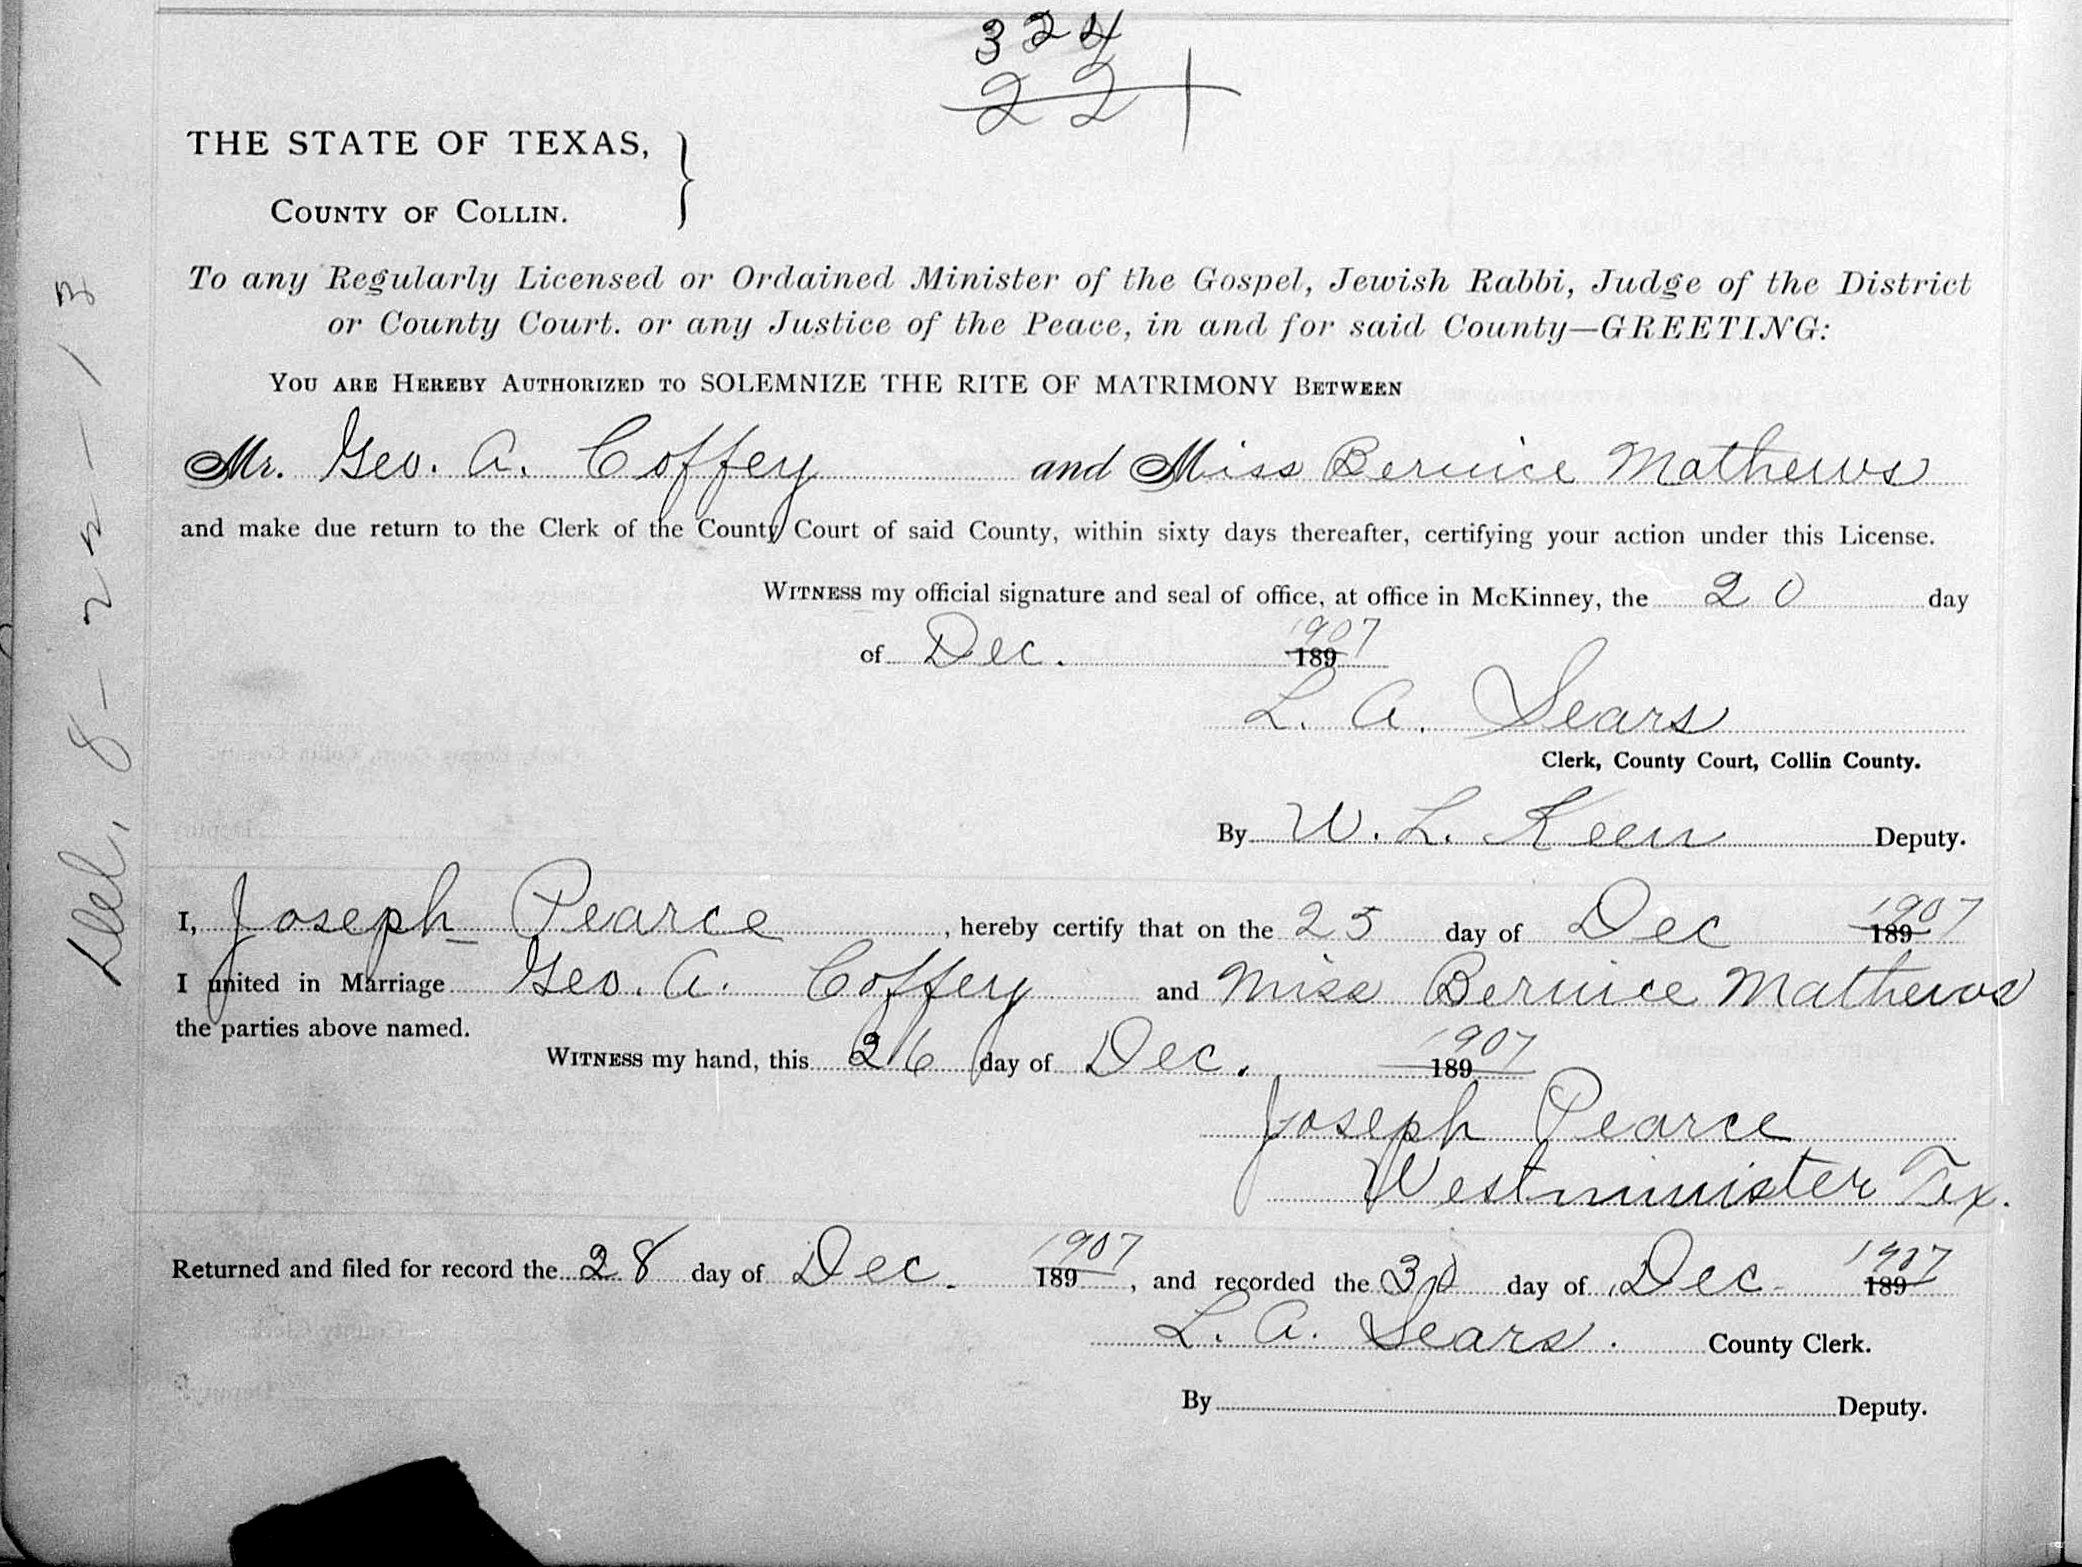 324
22
THE STATE OF TEXAS,
COUNTY OF COLLIN.
To any Regularly Licensed or Ordained Minister of the Gospel, Jewish Rabbi, Judge of the District
or County Court. or any Justice of the Peace, in and for said County—GREETING:
YOU ARE HEREBY AUTHORIZED TO SOLEMNIZE THE RITE OF MATRIMONY BETWEEN
Mr. Geo. A. Coffey and Miss Bernice Mathews
and make due return to the Clerk of the County Court of said County, within sixty days thereafter, certifying your action under this License.
WITNESS my official signature and seal of office, at office in McKinney, the 20 day
of Dec. 189 1907
L. A. Sears
Clerk, County Court, Collin County.
By W. L. Keen Deputy.
I, Joseph Pearce, hereby certify that on the 25 day of Dec 189 1907
I united in Marriage Geo. A. Coffey and Miss Bernice Mathews
the parties above named.
WITNESS my hand, this 26 day of Dec. 189 1907
Joseph Pearce
Westminister Tex.
Returned and filed for record the 28 day of Dec. 189 1907, and recorded the 30 day of Dec. 189 1907
L. A. Sears. County Clerk.
By Deputy.
Del. 8-22-13